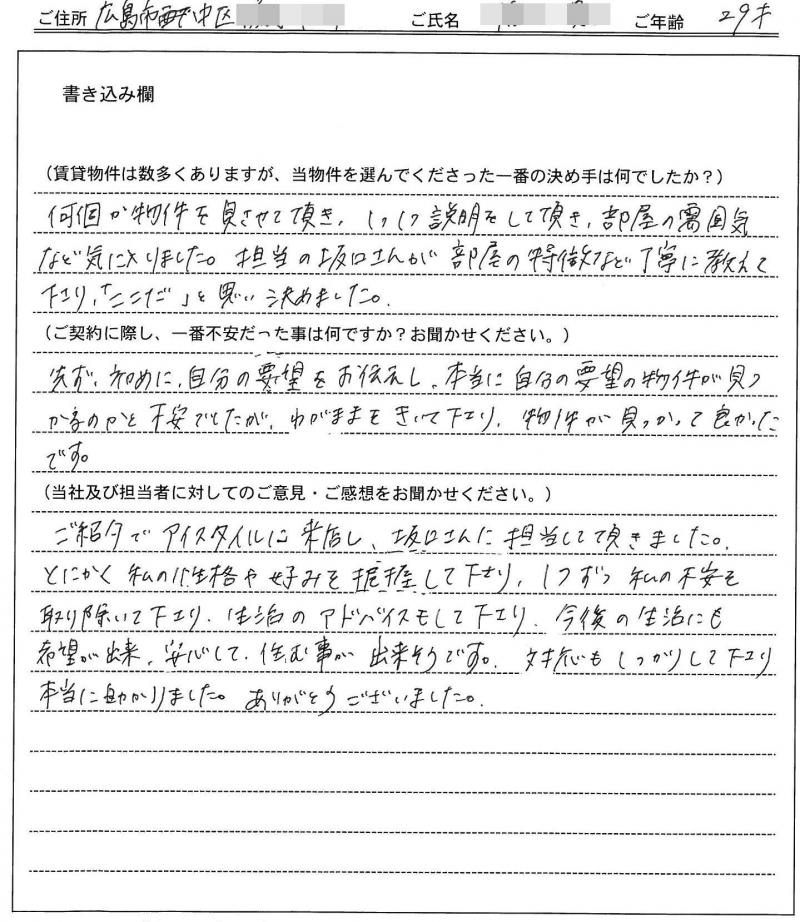 ご住所 広島市西中区 ご氏名 ご年齢 29才
書き込み欄
(賃貸物件は数多くありますが、当物件を選んでくださった一番の決め手は何でしたか?)
何個か物件を見させて頂き、1つ1つ説明をして頂き、部屋の雰囲気
など気に入りました。担当の坂口さんが部屋の特徴など丁寧に教えて
下さり、「ここだ」と思い決めました。
(ご契約に際し、一番不安だった事は何ですか?お聞かせください。)
先ず、初めに、自分の要望をお伝えし、本当に自分の要望の物件が見つ
かるのかと不安でしたが、わがままをきいて下さり、物件が見つかって良かった
です。
(当社及び担当者に対してのご意見・ご感想をお聞かせください。)
ご紹介でアイスタイルに来店し、坂口さんに担当して頂きました。
とにかく私の性格や好みを把握して下さり、1つずつ私の不安を
取り除いて下さり、生活のアドバイスもして下さり、今後の生活にも
希望が出来、安心して、住む事が出来そうです。対応もしっかりして下さり
本当に助かりました。ありがとうございました。